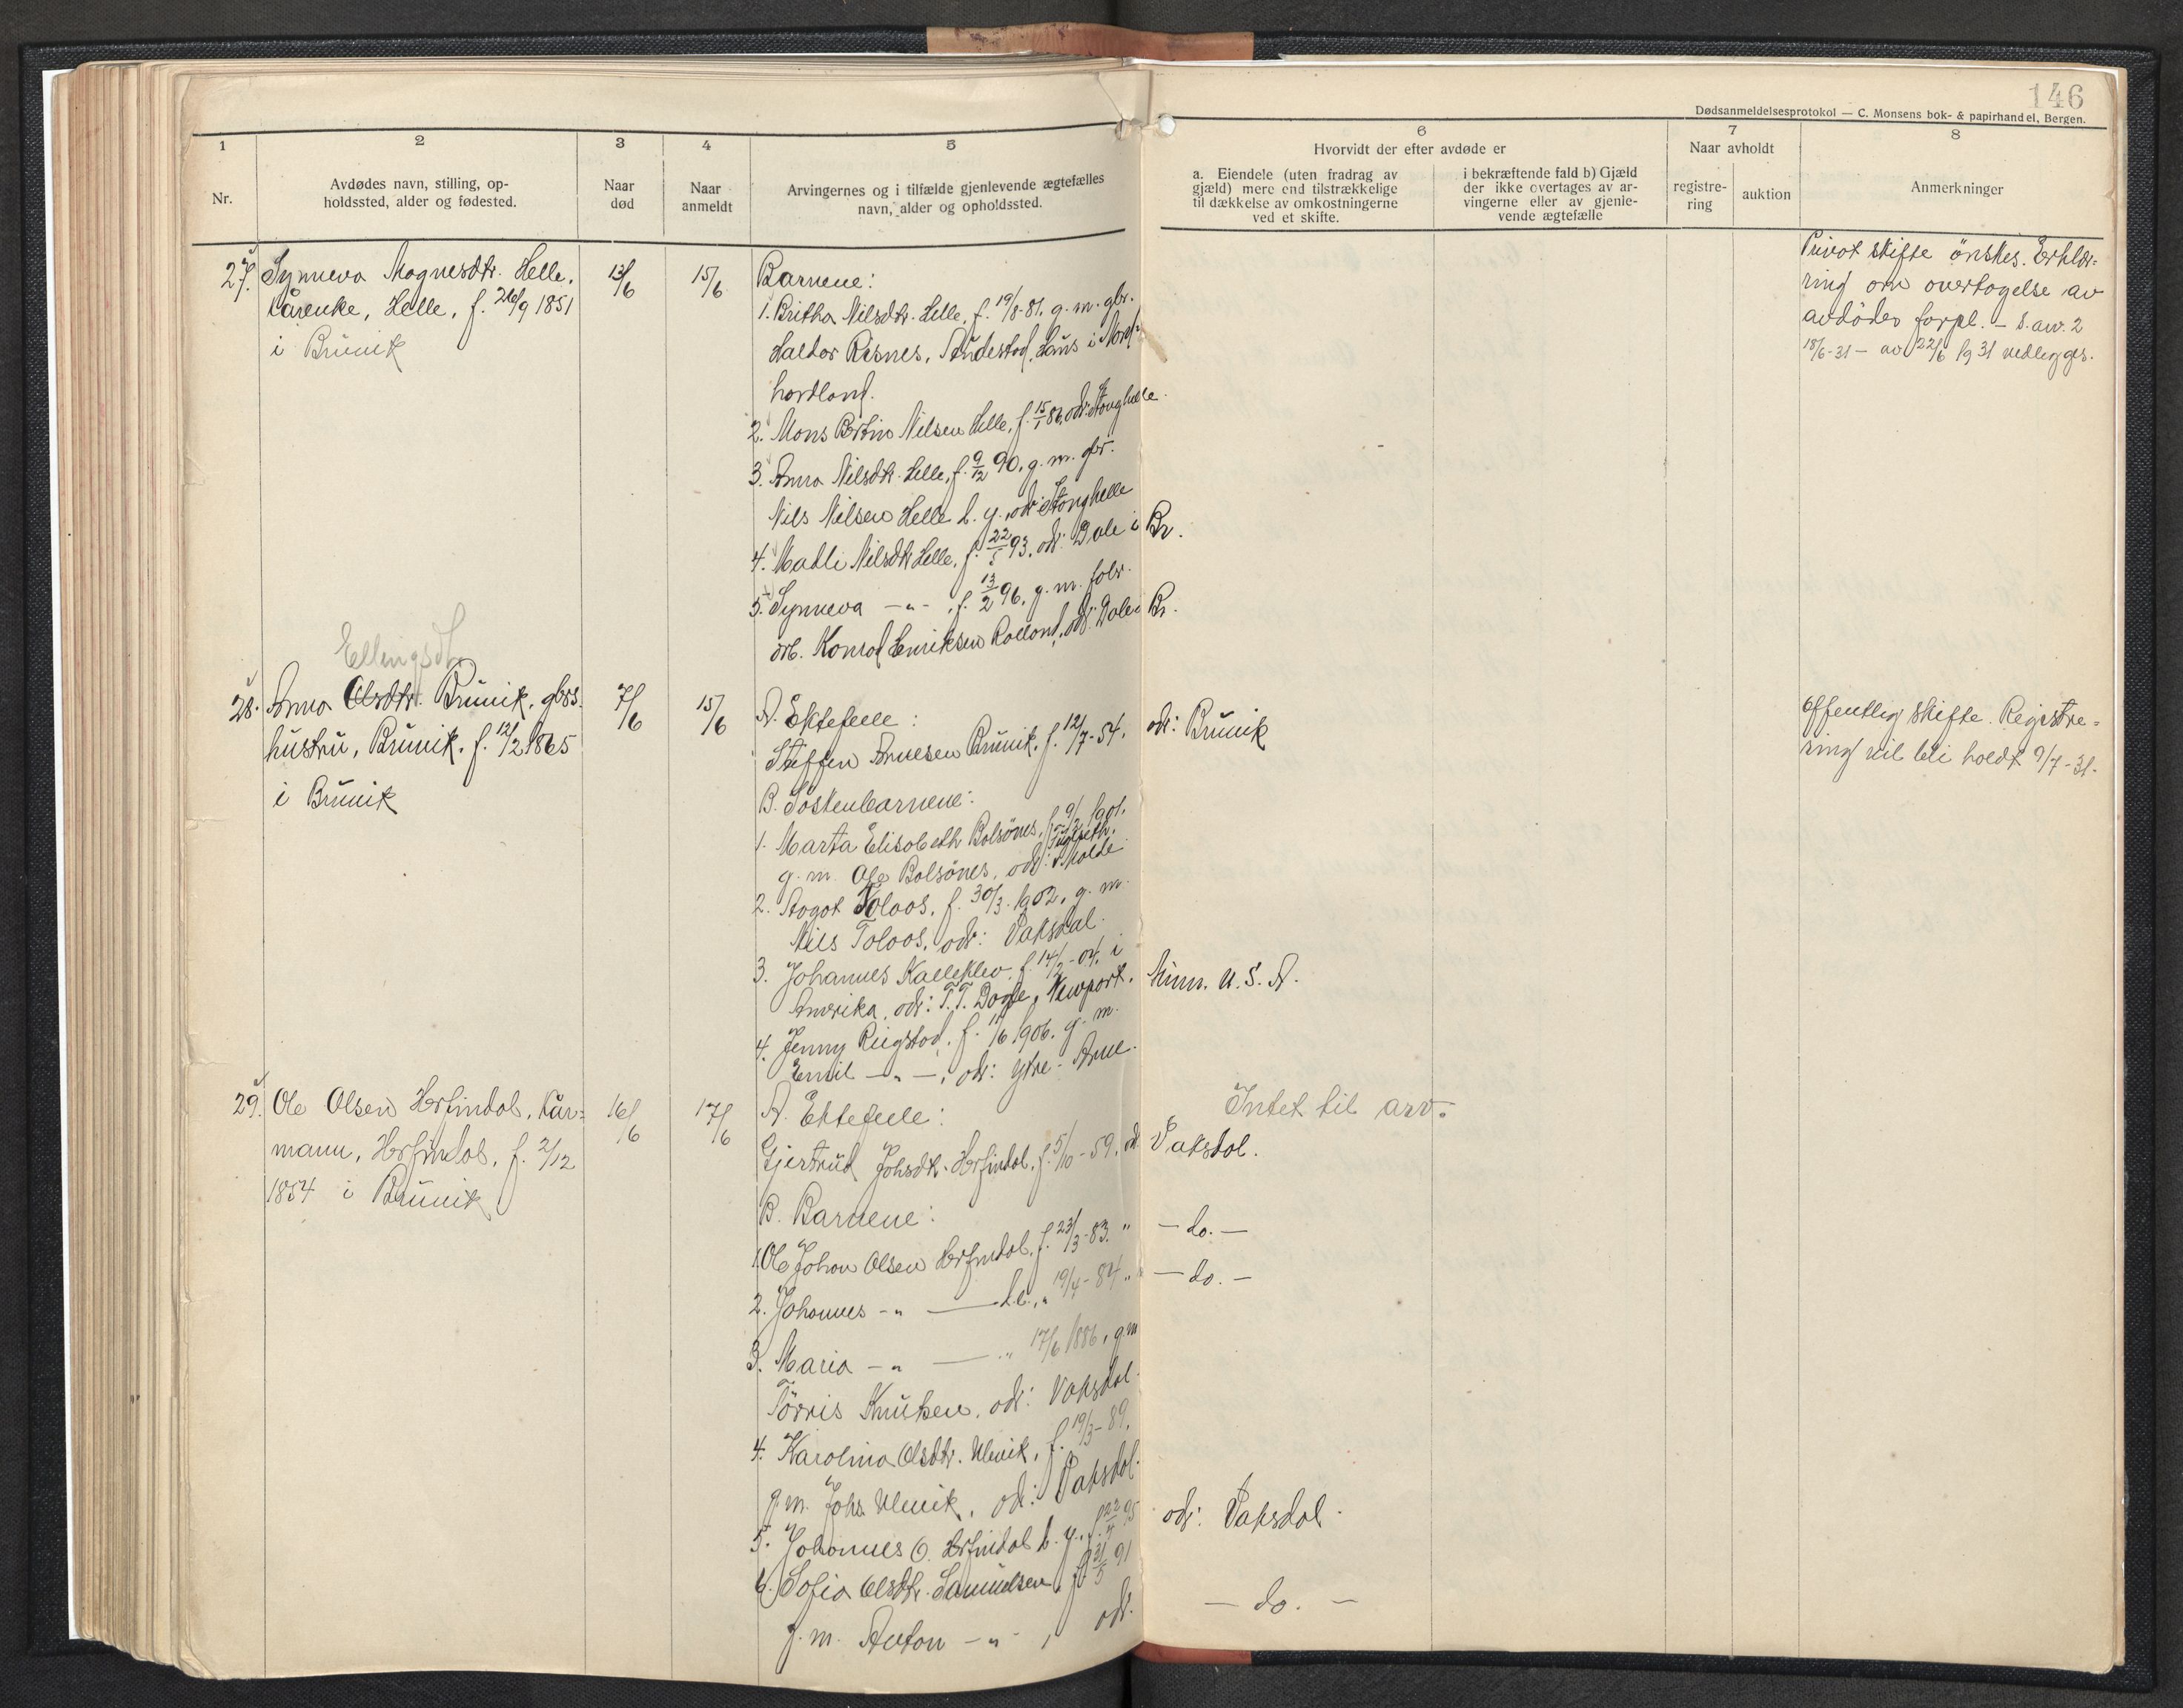 146
Dødsanmeldelsesprotokol — C. Monsens bok- & papirhandel, Bergen.
1
Nr.
2
Avdødes navn, stilling, op-
holdssted, alder og fødested.
3
Naar
død
4
Naar
anmeldt
5
Arvingernes og i tilfælde gjenlevende ægtefælles
navn, alder og opholdssted.
6
Hvorvidt der efter avdøde er
a. Eiendele (uten fradrag av
gjæld) mere end tilstrækkelige
til dækkelse av omkostningerne
ved et skifte.
i bekræftende fald b) Gjæld
der ikke overtages av ar-
vingerne eller av gjenle-
vende ægtefælle
7
Naar avholdt
registre-
ring
auktion
8
Anmerkninger
27. Synneva Magnesdtr. Helle,
kårenke, Helle, f. 26/9 1851
i Bruvik
13/6
15/6
Barnene:
1. Britha Nilsdtr. Helle, f. 19/8-81, g. m. gbr.
Haldor Risnes, Haus i Nord-
hordland.
2. Mons Nilsen Helle, f. 15/1 86, adr: Stanghelle.
3. Anna Nilsdtr. Helle, f. 9/12 90, g. m. gbr.
Nils Nilsen Helle d. y., adr: Stanghelle
4. Madli Nilsdtr Helle, f. 22/5 93, adr. Dale i Br.
5. Synneva -"- , f. 13/2 96, g. m. fabr.
arb. Konrad Henriksen Rolland, adr. Dale i Br.
Privat skifte önskes. Erklæ-
ring om overtagelse av
avdödes forpl. - S. av. 2
18/6-31 - av 22/6 1931 vedlegges.
Ellingsdtr
28. Anna Olsdtr. Bruvik, gbrs.
hustru, Bruvik, f. 12/2 1865
i Bruvik
7/6
15/6
A. Ektefelle:
Steffen Arnesen Bruvik, f. 12/7-54, adr: Bruvik
B. Söskenbarnene:
1. Marta Elisabeth Bolsönes, f. 9/2 1901,
g. m. Ole Bolsönes, adr: Molde
2. Aagot Toloos, f. 30/3-1902, g. m.
Nils Toloos, adr: Vaksdal.
3. Johannes Kalleklev, f. 14/2-04, i
Amerika, adr: T. T. Dogle, Newport, Minn. U. S. A.
4. Jenny Rigstad, f. 11/6 1906, g. m.
Emil -"-, adr: Ytre-Arne.
Offentlig skifte. Registre-
ring vil bli holdt 9/7-31.
29. Ole Olsen Herfindal, kår-
mann, Herfindal, f. 2/12
1854 i Bruvik
16/6
17/6
A. Ektefelle:
Gjertrud Johsdtr. Herfindal, f. 5/10-59, ad Vaksdal.
Intet til arv.
B. Barnene:
1. Ole Johan Olsen Herfindal, f. 23/3-83. " - do. -
2. Johannes -"- d.e., " 19/4-84 " - do. -
3. Maria -"- " 17/6 1886, g. m
Törris Knutsen, adr: Vaksdal.
4. Karolina Olsdtr. Ulevik, f. 19/3-89,
g. m. Johs. Ulevik, adr: Vaksdal.
5. Johannes O. Herfindal d. y., f. 22/4 95 adr: Vaksdal.
6. Sofia Olsdtr. Samuelsen, f. 31/5 91
g. m. Anton -"-, adr. - do. -